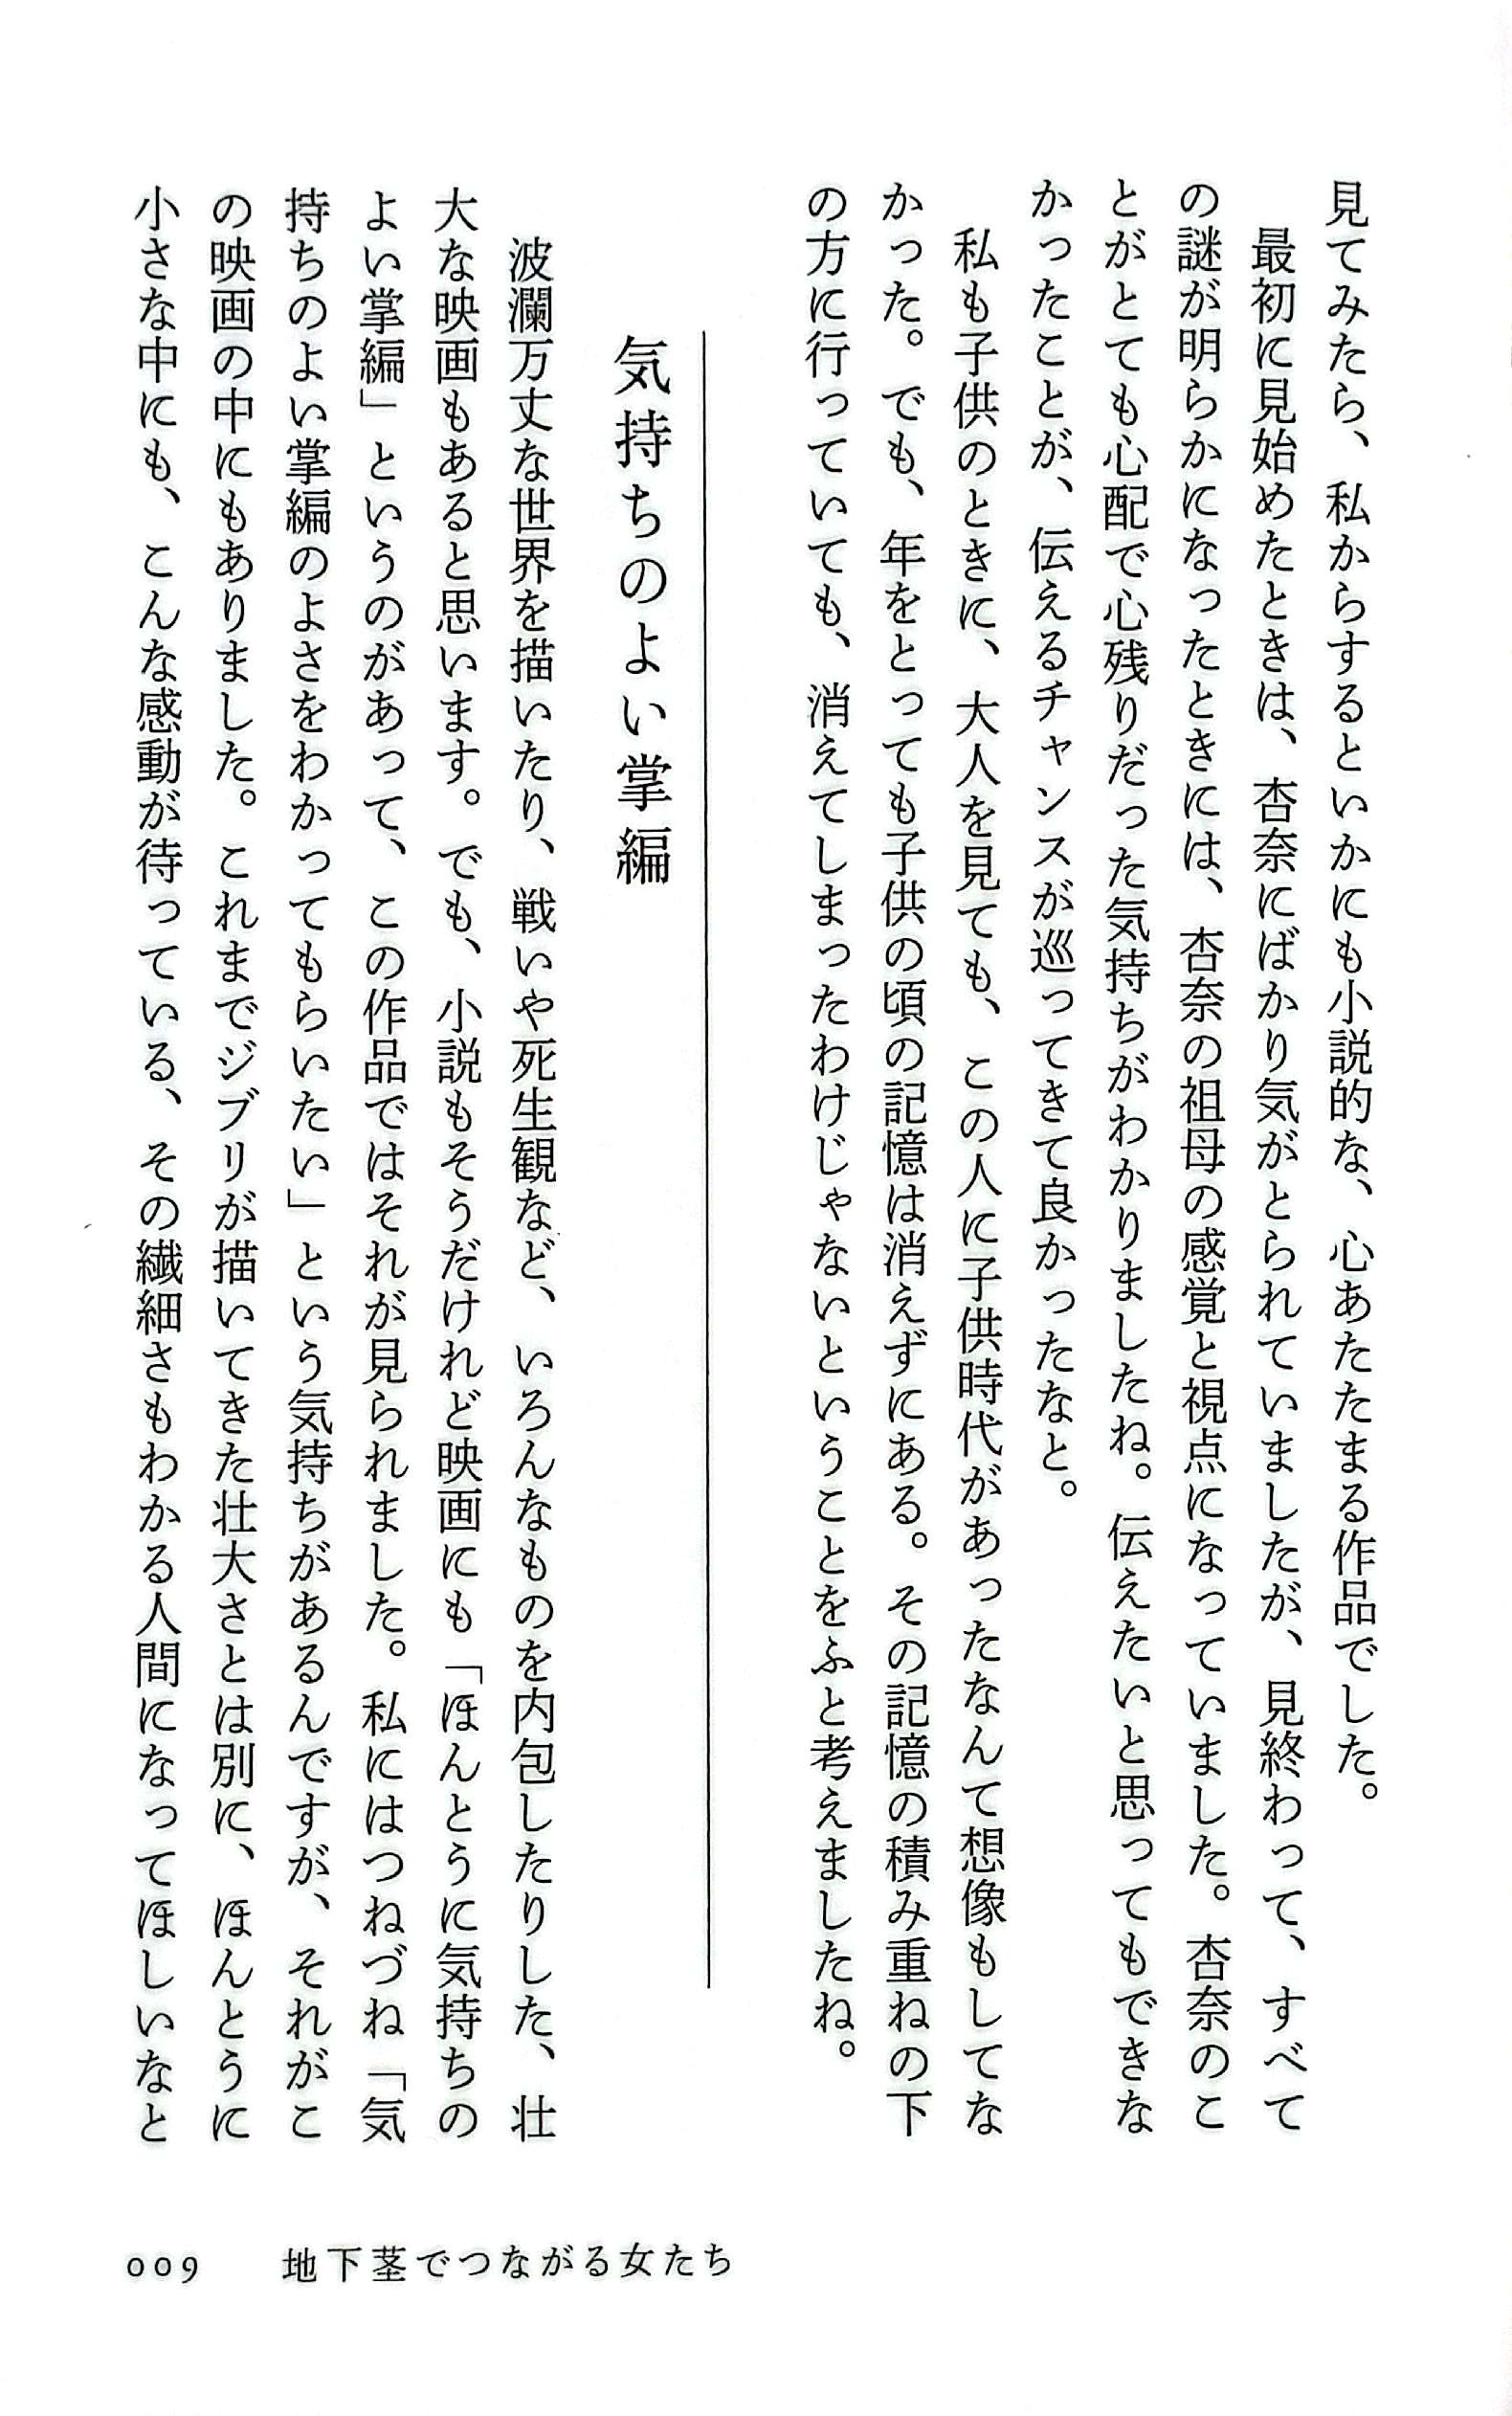 見てみたら、私からするといかにも小説的な、心あたたまる作品でした。
最初に見始めたときは、杏奈にばかり気がとられていましたが、見終わって、すべて
の謎が明らかになったときには、杏奈の祖母の感覚と視点になっていました。杏奈のこ
とがとても心配で心残りだった気持ちがわかりましたね。伝えたいと思ってもできな
かったことが、伝えるチャンスが巡ってきて良かったなと。
私も子供のときに、大人を見ても、この人に子供時代があったなんて想像もしてな
かった。でも、年をとっても子供の頃の記憶は消えずにある。その記憶の積み重ねの下
の方に行っていても、消えてしまったわけじゃないということをふと考えましたね。
気持ちのよい掌編
波瀾万丈な世界を描いたり、戦いや死生観など、いろんなものを内包したりした、壮
大な映画もあると思います。でも、小説もそうだけれど映画にも「ほんとうに気持ちの
よい掌編」というのがあって、この作品ではそれが見られました。私にはつねづね「気
持ちのよい掌編のよさをわかってもらいたい」という気持ちがあるんですが、それがこ
の映画の中にもありました。これまでジブリが描いてきた壮大さとは別に、ほんとうに
小さな中にも、こんな感動が待っている、その繊細さもわかる人間になってほしいなと
009 地下茎でつながる女たち